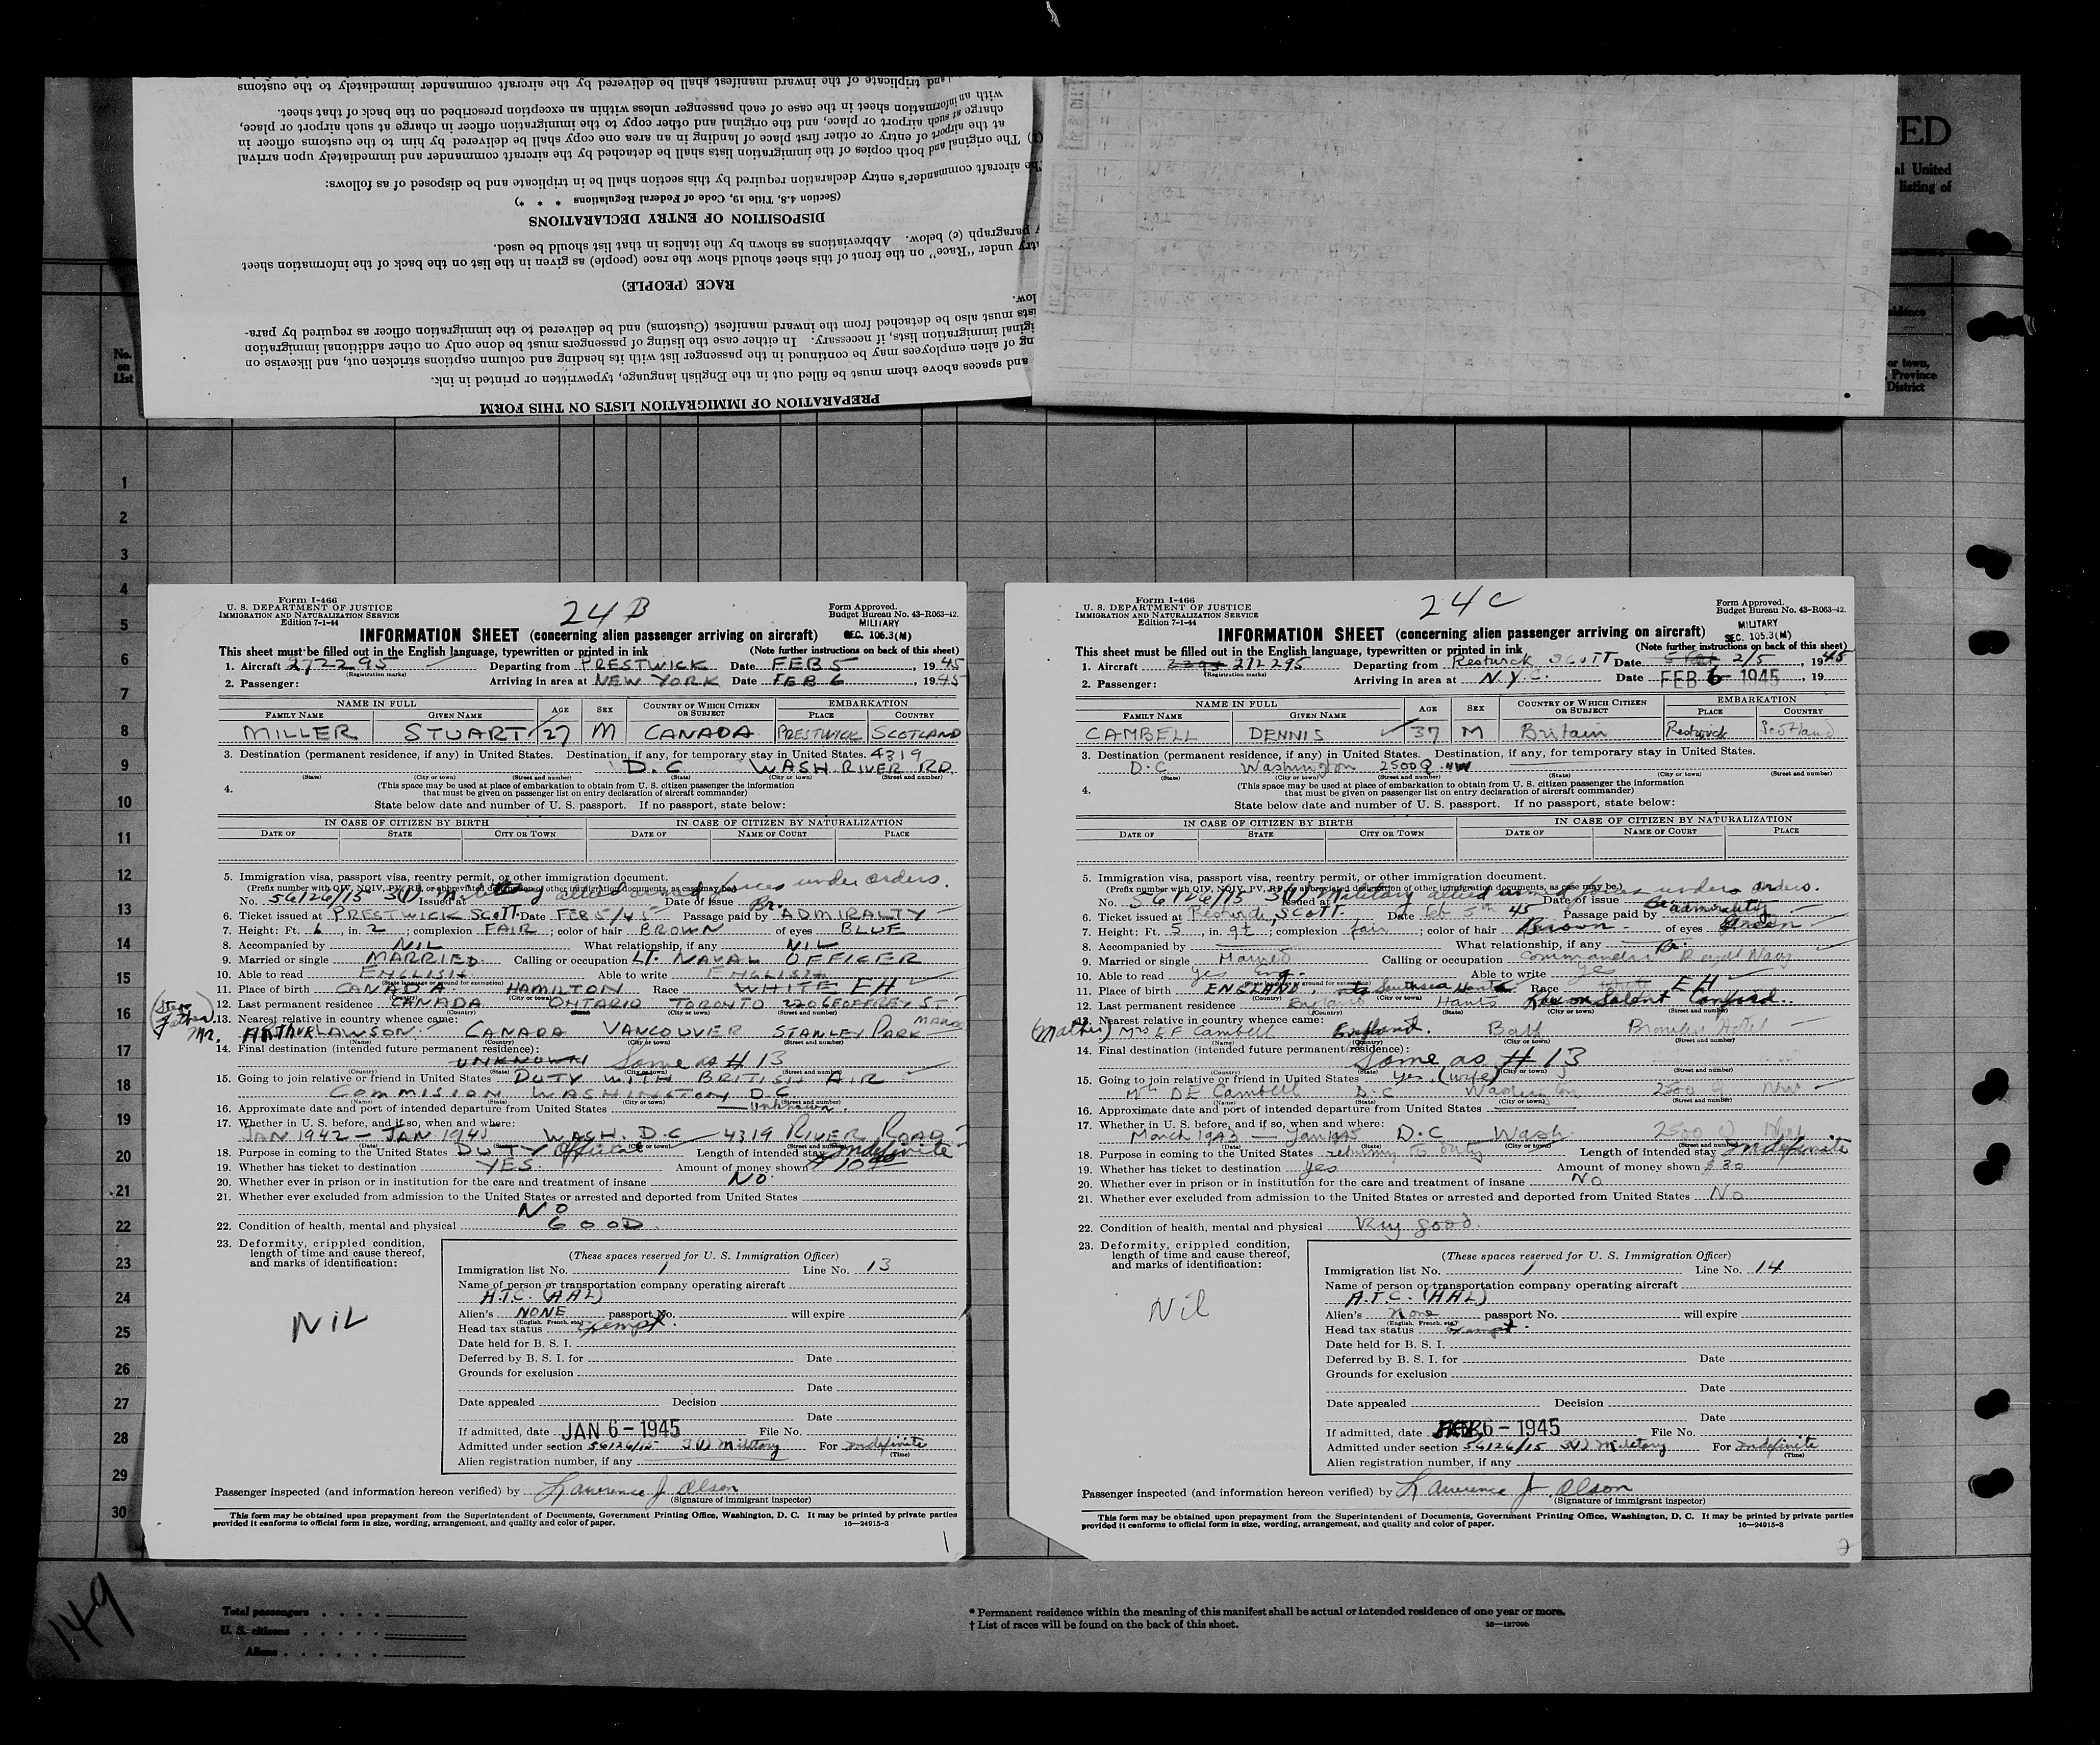 and triplicate of the inward manifest shall be delivered by the aircraft commander immediately to the customs
with an information sheet in the case of each passenger unless within an exception prescribed on the back of that sheet.
charge at such airport or place, and the original and other copy to the immigration officer in charge at such airport or place,
at the airport of entry or other first place of landing in an area one copy shall be delivered by him to the customs officer in
(1) The original and both copies of the immigration lists shall be detached by the aircraft commander and immediately upon arrival
The aircraft commander's entry declaration required by this section shall be in triplicate and be disposed of as follows:
(Section 4.8, Title 19, Code of Federal Regulations * * *)
DISPOSITION OF ENTRY DECLARATIONS
paragraph (c) below. Abbreviations as shown by the italics in that list should be used.
try under "Race" on the front of this sheet should show the race (people) as given in the list on the back of the information sheet
RACE (PEOPLE)
low.
ists must also be detached from the inward manifest (Customs) and be delivered to the immigration officer as required by para-
iginal immigration lists, if necessary. In either case the listing of passengers must be done only on other additional immigration
ng of alien employees may be continued in the passenger list with its heading and column captions stricken out, and likewise on
and spaces above them must be filled out in the English language, typewritten or printed in ink.
PREPARATION OF IMMIGRATION LISTS ON THIS FORM
ED
al United
listing of
or town,
Province
District
No.
on
List
1
2
3
4
5
6
7
8
9
10
11
12
13
14
15
16
17
18
19
20
21
22
23
24
25
26
27
28
29
30
Form I-466
U. S. DEPARTMENT OF JUSTICE
IMMIGRATION AND NATURALIZATION SERVICE
Edition 7-1-44
24 B
Form Approved.
Budget Bureau No. 43-R063-42.
MILITARY
SEC. 105.3(M)
INFORMATION SHEET (concerning alien passenger arriving on aircraft)
This sheet must be filled out in the English language, typewritten or printed in ink (Note further instructions on back of this sheet)
1. Aircraft 272295 Departing from PRESTWICK Date FEB 5, 1945
(Registration marks)
2. Passenger: Arriving in area at NEW YORK Date FEB 6, 1945
NAME IN FULL AGE SEX COUNTRY OF WHICH CITIZEN OR SUBJECT EMBARKATION
FAMILY NAME GIVEN NAME PLACE COUNTRY
MILLER STUART 27 M CANADA PRESTWICK SCOTLAND
3. Destination (permanent residence, if any) in United States. Destination, if any, for temporary stay in United States. 4319
D.C. WASH. RIVER RD.
(State) (City or town) (Street and number)
4. (This space may be used at place of embarkation to obtain from U. S. citizen passenger the information
that must be given on passenger list on entry declaration of aircraft commander)
State below date and number of U. S. passport. If no passport, state below:
IN CASE OF CITIZEN BY BIRTH IN CASE OF CITIZEN BY NATURALIZATION
DATE OF STATE CITY OR TOWN DATE OF NAME OF COURT PLACE
5. Immigration visa, passport visa, reentry permit, or other immigration document.
(Prefix number with QIV, NQIV, PV, RP, or abbreviated designation of other immigration documents, as case may be)
No. 56126/15 3(1) Military allied armed forces under orders. Issued at Date of issue
6. Ticket issued at PRESTWICK SCOTT. Date FEB 5/45 Passage paid by Br. ADMIRALTY
7. Height: Ft. 6, in. 2; complexion FAIR; color of hair BROWN of eyes BLUE
8. Accompanied by NIL What relationship, if any NIL
9. Married or single MARRIED. Calling or occupation LT. NAVAL OFFICER
10. Able to read ENGLISH Able to write ENGLISH
(State language or ground for exemption)
11. Place of birth CANADA. HAMILTON Race WHITE EH
(Country) (City or town)
12. Last permanent residence CANADA ONTARIO TORONTO 220 GEOFFREY ST
(Country)
(Step father)
13. Nearest relative in country whence came:
Mr. ARTHUR LAWSON. CANADA VANCOUVER STANLEY PARK MANOR
(Name) (Country) (City or town) (Street and number)
14. Final destination (intended future permanent residence):
UNKNOWN Same as # 13
(Country) (State) (City or town) (Street and number)
15. Going to join relative or friend in United States DUTY WITH BRITISH AIR
COMMISION WASHINGTON D.C
(Name) (State) (City or town) (Street and number)
16. Approximate date and port of intended departure from United States unknown.
17. Whether in U.S. before, and if so, when and where:
JAN 1942 — JAN 1945 WASH. D.C 4319 RIVER ROAD
(Date)
18. Purpose in coming to the United States DUTY official Length of intended stay Indefinite
19. Whether has ticket to destination YES. Amount of money shown $ 10 00
20. Whether ever in prison or in institution for the care and treatment of insane NO.
21. Whether ever excluded from admission to the United States or arrested and deported from United States
NO
22. Condition of health, mental and physical GOOD.
23. Deformity, crippled condition,
length of time and cause thereof,
and marks of identification:
NIL
(These spaces reserved for U. S. Immigration Officer)
Immigration list No. 1 Line No. 13
Name of person or transportation company operating aircraft
A.T.C. (AAL)
Alien's NONE passport No. will expire
(English, French, etc.)
Head tax status Exempt.
Date held for B. S. I.
Deferred by B. S. I. for Date
Grounds for exclusion
Date
Date appealed Decision
Date
If admitted, date JAN 6 - 1945 File No.
Admitted under section 56126/15 3(1) Military For Indefinite
(Time)
Alien registration number, if any
Passenger inspected (and information hereon verified) by Lawrence J. Olson
(Signature of immigrant inspector)
This form may be obtained upon prepayment from the Superintendent of Documents, Government Printing Office, Washington, D. C. It may be printed by private parties
provided it conforms to official form in size, wording, arrangement, and quality and color of paper. 16—24915-3
1
Form I-466
U. S. DEPARTMENT OF JUSTICE
IMMIGRATION AND NATURALIZATION SERVICE
Edition 7-1-44
24 C
Form Approved.
Budget Bureau No. 43-R063-42.
MILITARY
SEC. 105.3(M)
INFORMATION SHEET (concerning alien passenger arriving on aircraft)
This sheet must be filled out in the English language, typewritten or printed in ink (Note further instructions on back of this sheet)
1. Aircraft 2295 272295 Departing from Prestwick SCOTT Date 2/5, 1945
(Registration marks)
2. Passenger: Arriving in area at N.Y.C. Date FEB 6 - 1945, 19
NAME IN FULL AGE SEX COUNTRY OF WHICH CITIZEN OR SUBJECT EMBARKATION
FAMILY NAME GIVEN NAME PLACE COUNTRY
CAMBELL DENNIS 37 M Britain Prestwick Scotland
3. Destination (permanent residence, if any) in United States. Destination, if any, for temporary stay in United States.
D.C Washington 2500 Q. NW
(State) (City or town) (Street and number)
4. (This space may be used at place of embarkation to obtain from U. S. citizen passenger the information
that must be given on passenger list on entry declaration of aircraft commander)
State below date and number of U. S. passport. If no passport, state below:
IN CASE OF CITIZEN BY BIRTH IN CASE OF CITIZEN BY NATURALIZATION
DATE OF STATE CITY OR TOWN DATE OF NAME OF COURT PLACE
5. Immigration visa, passport visa, reentry permit, or other immigration document.
(Prefix number with QIV, NQIV, PV, RP, or abbreviated designation of other immigration documents, as case may be.)
No. 56126/15 3(1) Military allied armed forces under orders. Issued at Date of issue
6. Ticket issued at Prestwick, SCOTT. Date Feb 5th 45 Passage paid by Br admiralty
7. Height: Ft. 5, in. 9½; complexion fair; color of hair Brown of eyes Green
8. Accompanied by What relationship, if any
9. Married or single Married Calling or occupation Commander Br. Royal Navy
10. Able to read yes Eng. Able to write yes
(State language or ground for exemption)
11. Place of birth ENGLAND, Southsea Hants Race White EH
(Country) (City or town)
12. Last permanent residence England Hants
(Country) (State) (City or town)
13. Nearest relative in country whence came:
(Mother) Mrs E F Cambell England. Bath Hotel
(Name) (Country) (City or town) (Street and number)
14. Final destination (intended future permanent residence):
Same as # 13
(Country) (State) (City or town) (Street and number)
15. Going to join relative or friend in United States yes (wife)
Mrs DE Cambell D.C Washington 2500 Q NW
(Name) (State) (City or town) (Street and number)
16. Approximate date and port of intended departure from United States
17. Whether in U.S. before, and if so, when and where:
March 1943 — Jan 1945 D.C Wash. 2500 Q NW
(Date) (Street and number)
18. Purpose in coming to the United States returning to duty Length of intended stay Indefinite
19. Whether has ticket to destination yes Amount of money shown $ 30
20. Whether ever in prison or in institution for the care and treatment of insane No
21. Whether ever excluded from admission to the United States or arrested and deported from United States No
22. Condition of health, mental and physical Very good.
23. Deformity, crippled condition,
length of time and cause thereof,
and marks of identification:
Nil
(These spaces reserved for U. S. Immigration Officer)
Immigration list No. 1 Line No. 14
Name of person or transportation company operating aircraft
A.T.C. (AAL)
Alien's None passport No. will expire
(English, French, etc.)
Head tax status Exempt.
Date held for B. S. I.
Deferred by B. S. I. for Date
Grounds for exclusion
Date
Date appealed Decision
Date
If admitted, date FEB 6 - 1945 File No.
Admitted under section 56126/15 3(1) Military For Indefinite
(Time)
Alien registration number, if any
Passenger inspected (and information hereon verified) by Lawrence J. Olson
(Signature of immigrant inspector)
This form may be obtained upon prepayment from the Superintendent of Documents, Government Printing Office, Washington, D. C. It may be printed by private parties
provided it conforms to official form in size, wording, arrangement, and quality and color of paper. 16—24915-3
2
149
Total passengers
U. S. citizens
Aliens
* Permanent residence within the meaning of this manifest shall be actual or intended residence of one year or more.
† List of races will be found on the back of this sheet. 16—18709b